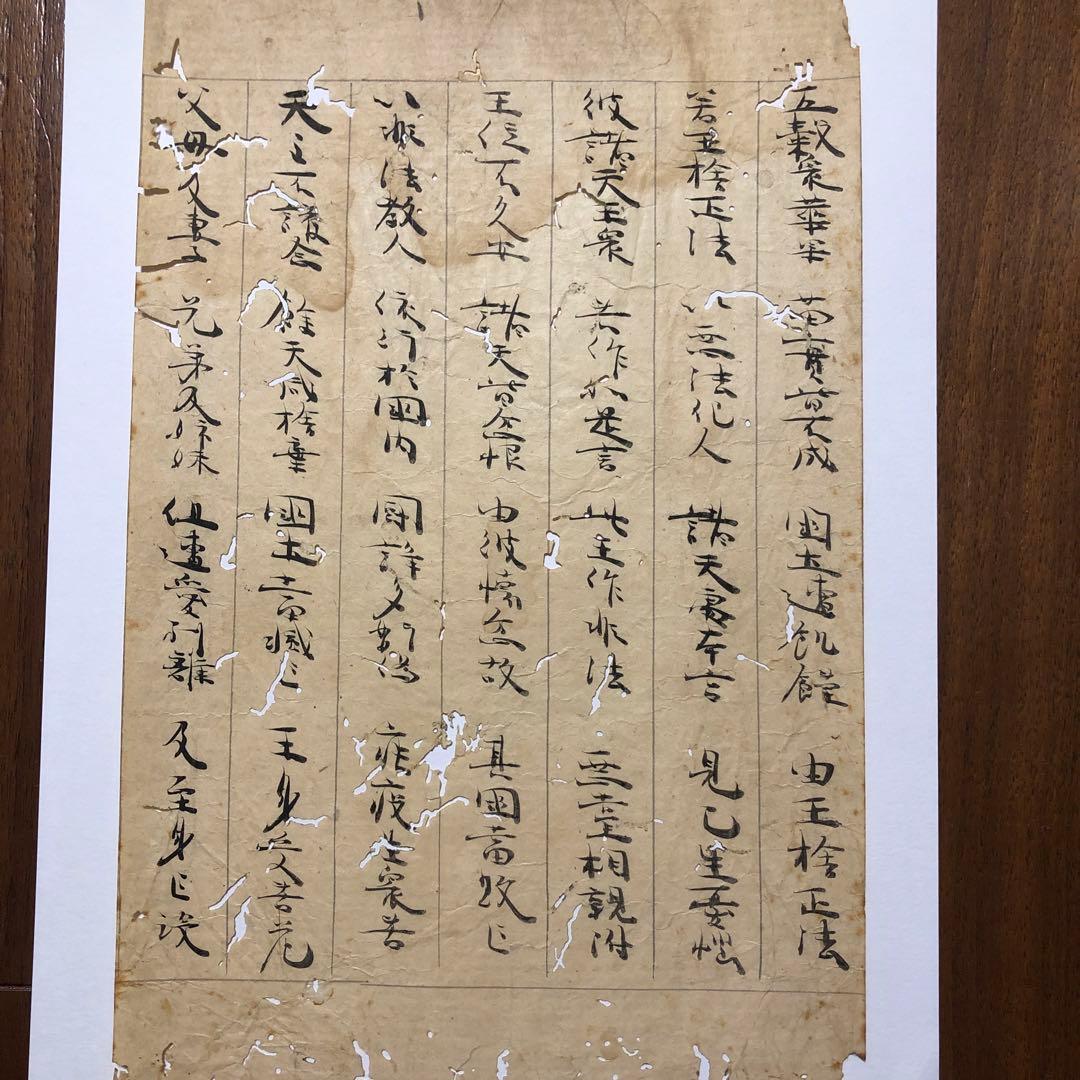 五穀衆華果 苗實皆不成 國土遭飢饉 由王捨正法
若王捨正法 以惡法化人 諸天處本宮 見已生憂惱
彼諸天王衆 共作如是言 此王作非法 惡黨相親附
王位不久安 諸天皆忿恨 由彼懷忿故 其國當敗亡
以非法教人 流行於國內 鬪諍多姧偽 疾疫生衆苦
天主不護念 餘天咸捨棄 國土當滅亡 王身受苦厄
父母及妻子 兄弟及姉妹 俱遭愛別離 乃至身亡歿